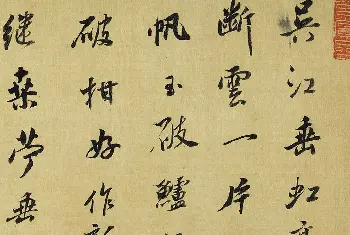 吳江垂虹
斷雲一片
帆玉破鱸
破柑好作
継桑苧垂